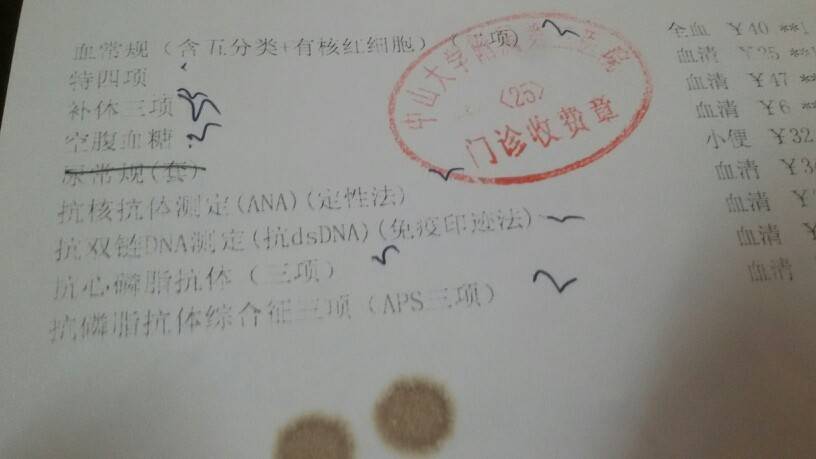 血常规(含五分类+有核红细胞)( 项) 全血 ¥40 **1
特四项 血清 ¥25 **
补体三项 血清 ¥47 **
空腹血糖 血清 ¥6 **
尿常规(套) 小便 ¥32
抗核抗体测定(ANA)(定性法) 血清 ¥3
抗双链DNA测定(抗dsDNA)(免疫印迹法) 血清 ¥
抗心磷脂抗体(三项) 血清 ¥
抗磷脂抗体综合征三项(APS三项) 血清
中山大学附属第 医院
<25>
门诊收费章